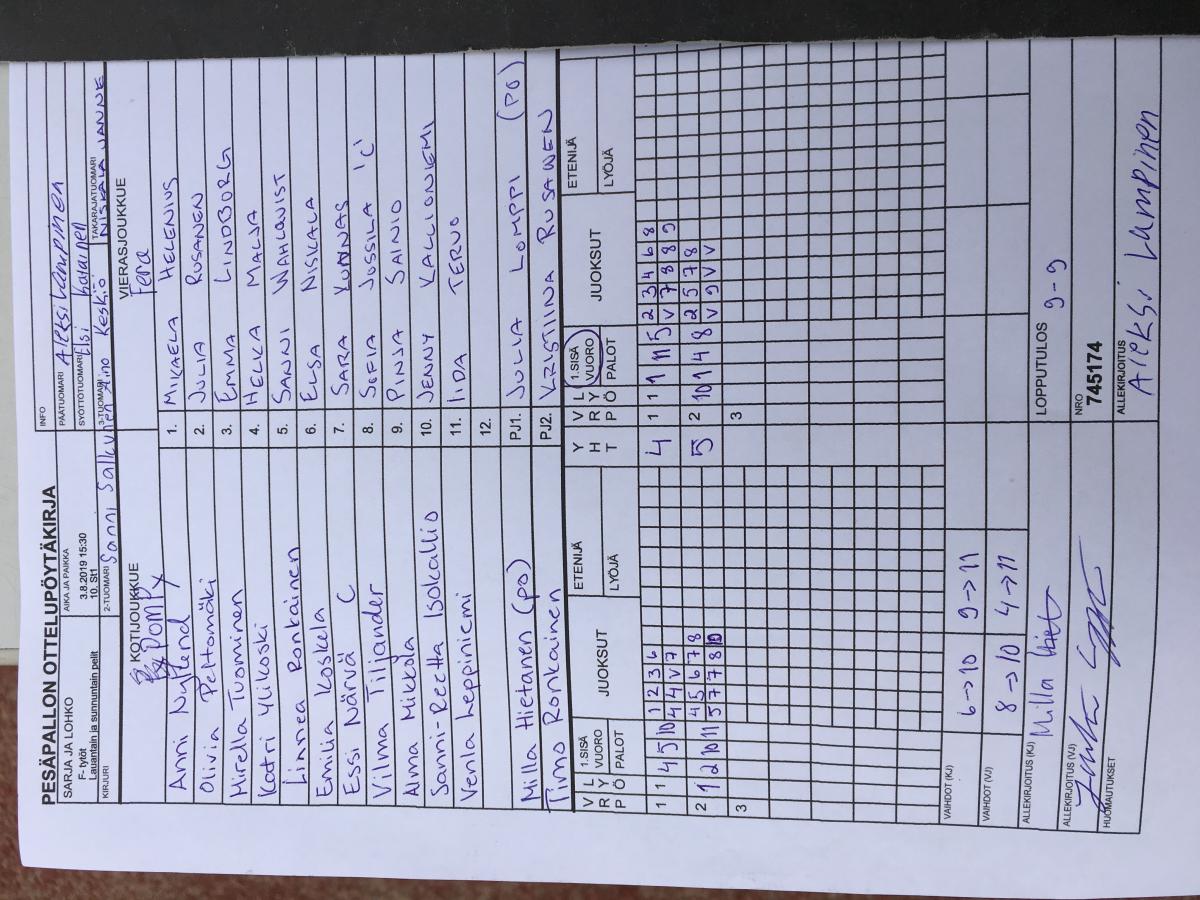 PESÄPALLON OTTELUPÖYTÄKIRJA
INFO
SARJA JA LOHKO
F- tytöt
Lauantain ja sunnuntain pelit
AIKA JA PAIKKA
3.8.2019 15:30
10, St1
PÄÄTUOMARI Aleksi Lampinen
SYÖTTÖTUOMARI Elsi
KIRJURI
2-TUOMARI Sanni
3-TUOMARI Aino Keskiö
TAKARAJATUOMARI NISKALA JANNE
KOTIJOUKKUE
PomPy
VIERASJOUKKUE
Fera
Anni Nylund 1. MIKAELA HELENIUS
Olivia Peltomäki 2. JULIA RUSANEN
Mirella Tuominen 3. EMMA LINDBORG
Katri Ylikoski 4. HELKA MALJA
Linnea Ronkainen 5. SANNI WAHLQVIST
Emilia Koskela 6. ELSA NISKALA
Essi Närvä C 7. SARA KUNNAS
Vilma Tiljander 8. SOFIA JUSSILA 'C'
Alma Mikkola 9. PINJA SAINIO
Sanni-Reetta Isokallio 10. JENNY KALLIONIEMI
Venla Leppiniemi 11. IIDA TERVO
12.
Milla Hietanen (po) PJ1. JULIA LOMPPI (PO)
Timo Ronkainen PJ2. KRISTIINA RUSANEN
V R P L Y Ö 1.SISÄ VUORO PALOT JUOKSUT ETENIJÄ LYÖJÄ Y H T V R P L Y Ö 1.SISÄ VUORO PALOT JUOKSUT ETENIJÄ LYÖJÄ
1 1 4 5 10 1 2 3 6 4 1 1 1 11 5 2 3 4 6 8
4 4 V 7 V 7 8 8 9
2 1 2 10 11 4 5 6 7 8 5 2 10 1 4 8 2 5 7 8
5 7 7 8 10 V 9 V V
3 3
VAIHDOT (KJ) 6→10 9→11
VAIHDOT (VJ) 8→10 4→11
ALLEKIRJOITUS (KJ) Milla
LOPPUTULOS 9-9
ALLEKIRJOITUS (VJ)
NRO
745174
HUOMAUTUKSET
ALLEKIRJOITUS
Aleksi Lampinen